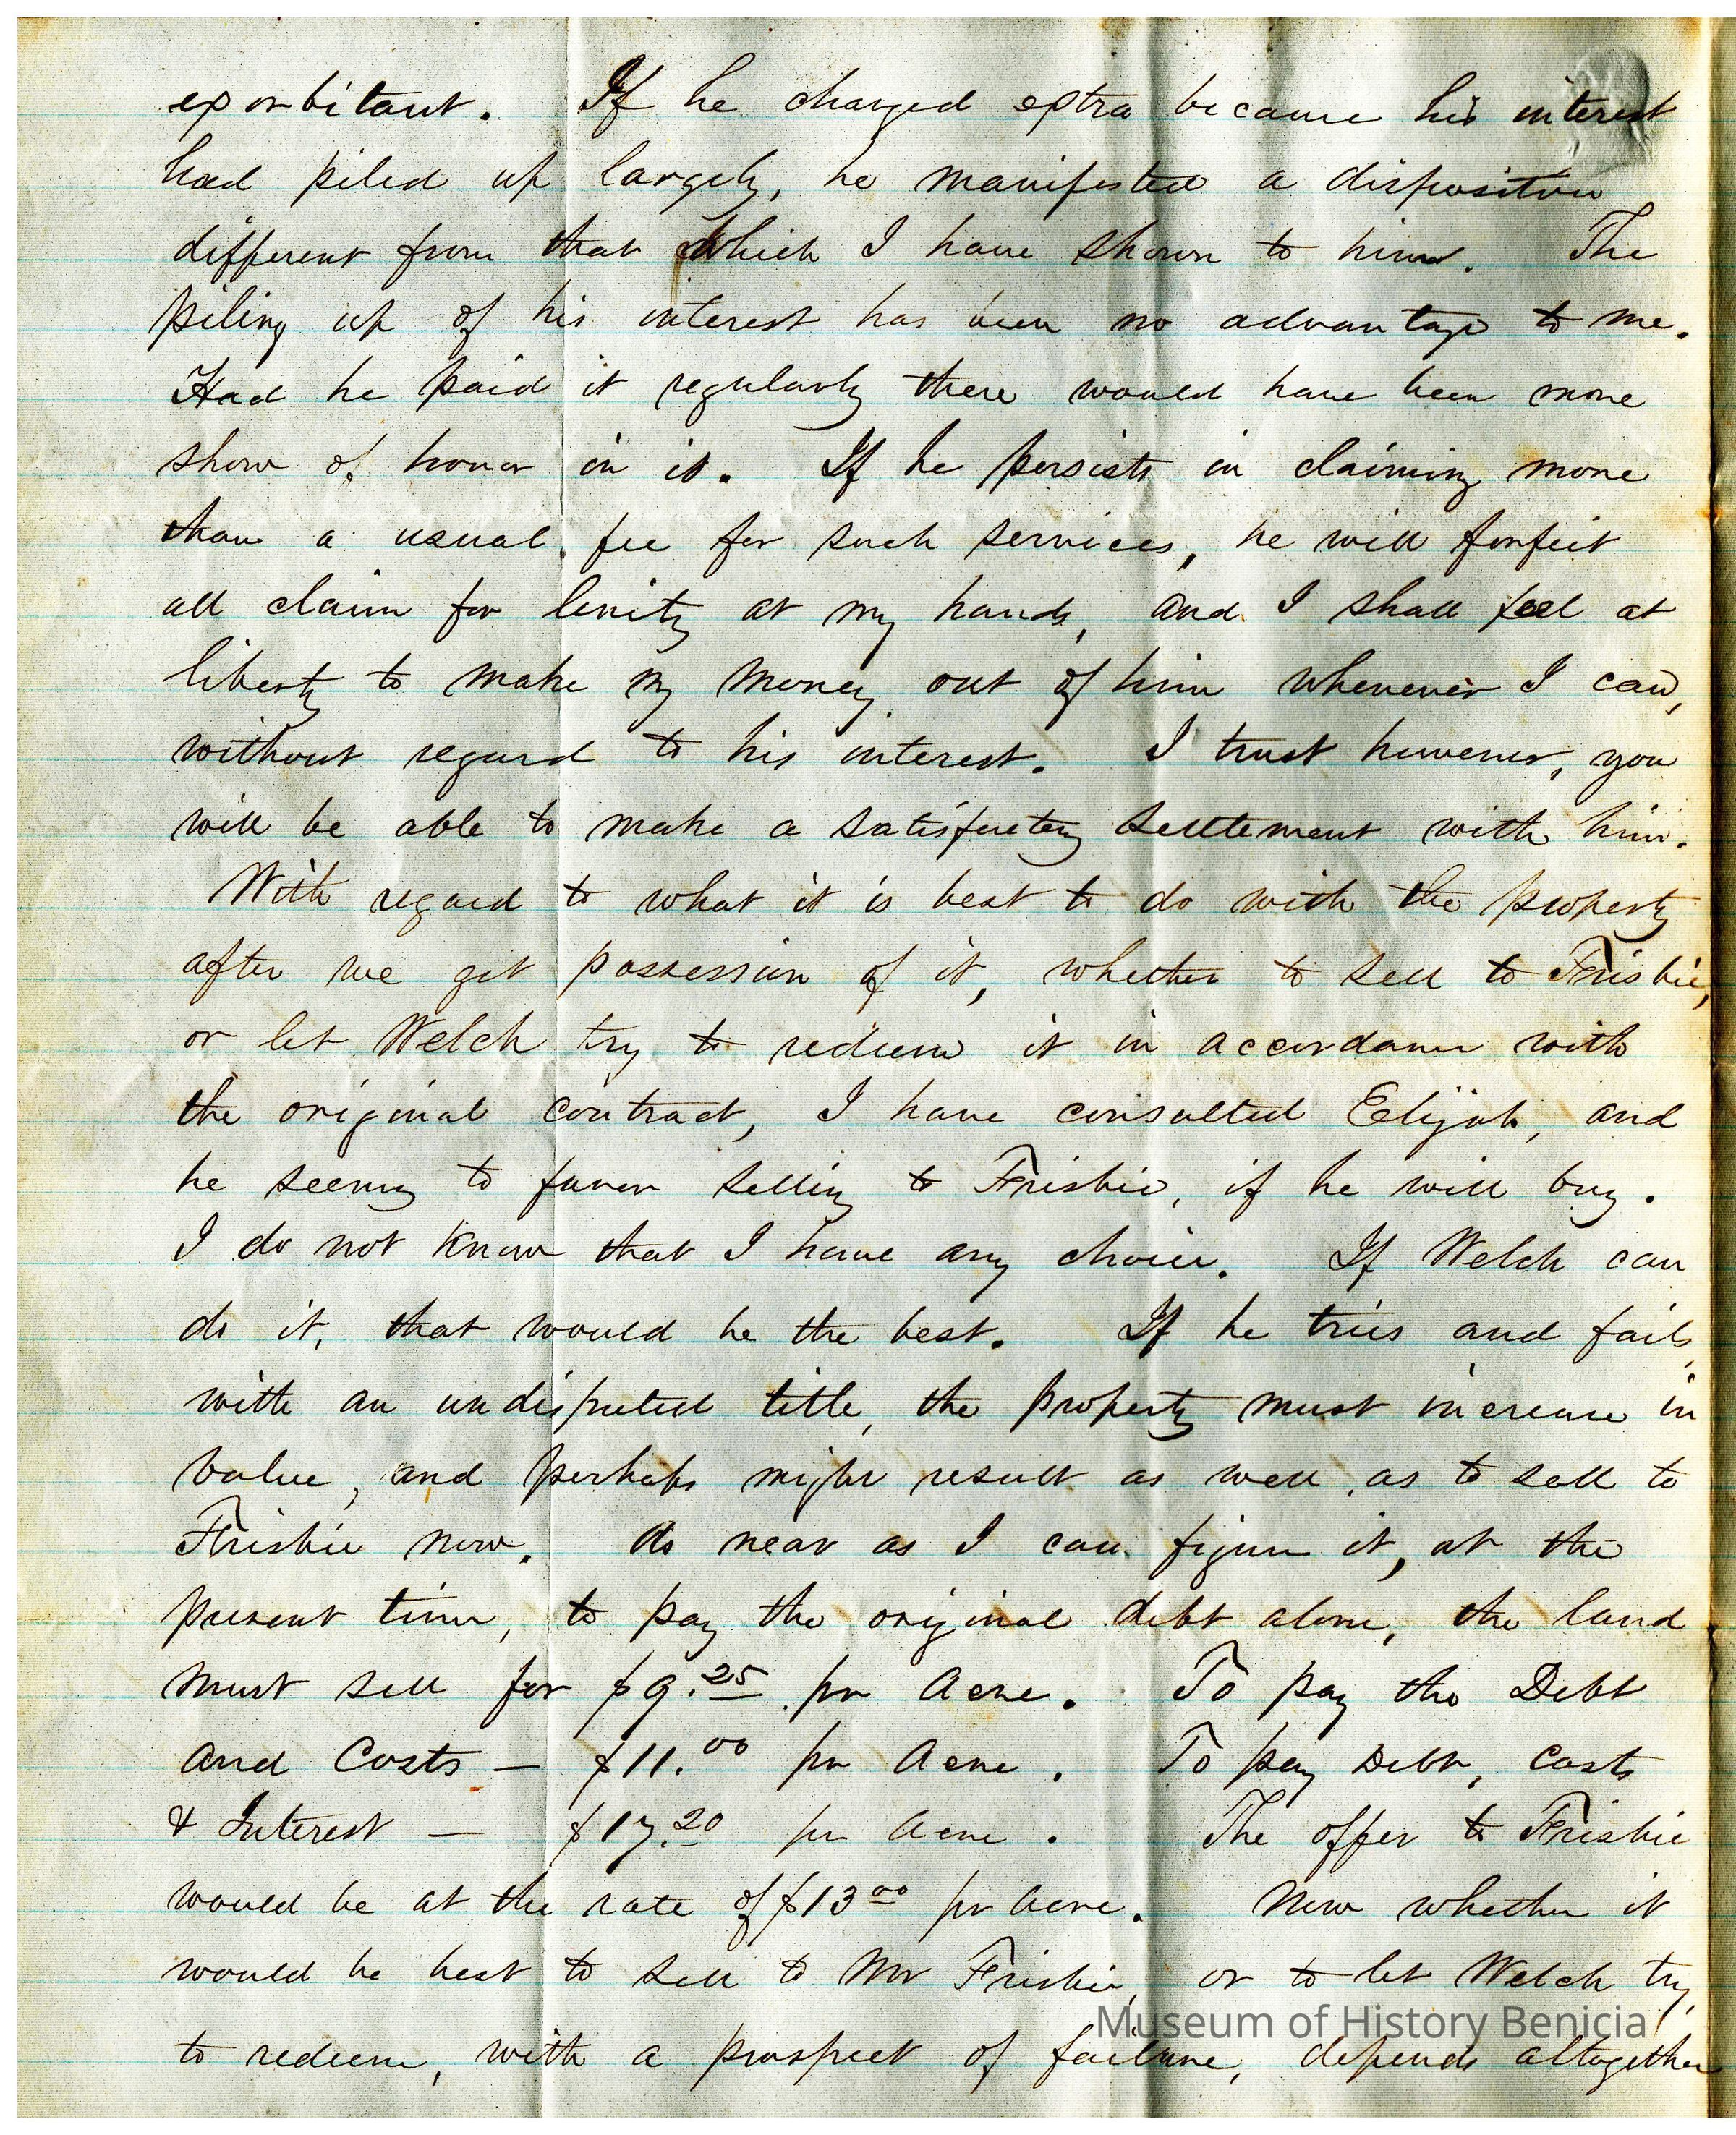 exorbitant. If he charged extra because his interest
had piled up largely, he manifested a disposition
different from that which I have shown to him. The
piling up of his interest has been no advantage to me.
Had he paid it regularly there would have been more
show of honor in it. If he persists in claiming more
than a usual fee for such services, he will forfeit
all claim for lenity at my hands, and I shall feel at
liberty to make my money out of him whenever I can,
without regard to his interest. I trust however, you
will be able to make a satisfactory settlement with him.
With regard to what it is best to do with the property
after we get possession of it, whether to sell to Frisbie,
or let Welch try to redeem it in accordance with
the original contract, I have consulted Elijah, and
he seems to favor selling to Frisbie, if he will buy.
I do not know that I have any choice. If Welch can
do it, that would be the best. If he tries and fails,
with an undisputed title, the property must increase in
value, and perhaps might result as well, as to sell to
Frisbie now. As near as I can figure it, at the
present time, to pay the original debt alone, the land
must sell for $9.25 pr Acre. To pay the Debt
and Costs — $11.00 pr Acre. To pay Debt, Costs
& Interest — $17.20 pr Acre. The offer to Frisbie
would be at the rate of $13 00 pr Acre. Now whether it
would be best to sell to Mr Frisbie, or to let Welch try,
to redeem, with a prospect of failure, depends altogether
Museum of History Benicia